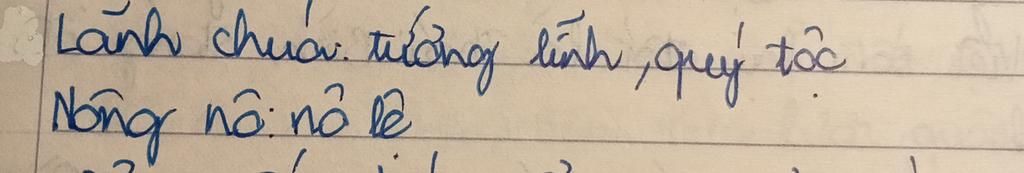 Lãnh chúa: tướng lĩnh, quý tộc
Nông nô: nô lệ